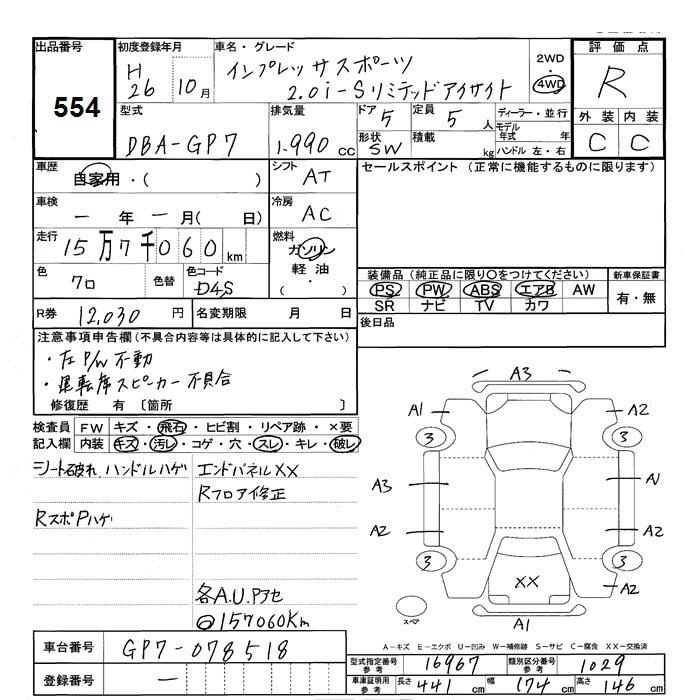 出品番号
554
初度登録年月
H 26 10月
車名・グレード
インプレッサスポーツ
2.0i-Sリミテッドアイサイト
2WD・4WD
評価点
R
外装 内装
C C
型式
DBA-GP7
排気量
1.990cc
ドア 5
定員 5人
形状 SW
積載 kg
ディーラー・並行
モデル年式 年
ハンドル 左・右
車歴
自家用・( )
シフト AT
セールスポイント (正常に機能するものに限ります)
車検
― 年 ― 月( 日)
冷房 AC
走行
15万7千060km
燃料
ガソリン
軽油
・( )
色
クロ
色替
色コード
D4S
装備品(純正品に限り○をつけてください)
PS PW ABS エアB AW
SR ナビ TV カワ
新車保証書
有・無
R券 12,030円
名変期限 月 日
後日品
注意事項申告欄(不具合内容等は具体的に記入して下さい)
・左P/W不動
・運転席スピーカー不具合
修復歴 有〔箇所 〕
検査員記入欄
FW キズ・飛石・ヒビ割・リペア跡・×要
内装 キズ・汚レ・コゲ・穴・スレ・キレ・破レ
シート破れ ハンドルハゲ
エンドパネルXX
Rフロア修正
RスポPハゲ
各A.U.Pアセ
157060Km
A3
A1 A2
3 3
A3 A1
A2 A2
3 3
XX A2
スペア
A1
A-キズ E-エクボ U-凹み W-補修跡 S-サビ C-腐食 XX-交換済
車台番号
GP7-078518
登録番号
―
型式指定番号 参考 16967
類別区分番号 参考 1029
車庫証明用 参考
長さ 441cm 幅 174cm 高さ 146cm